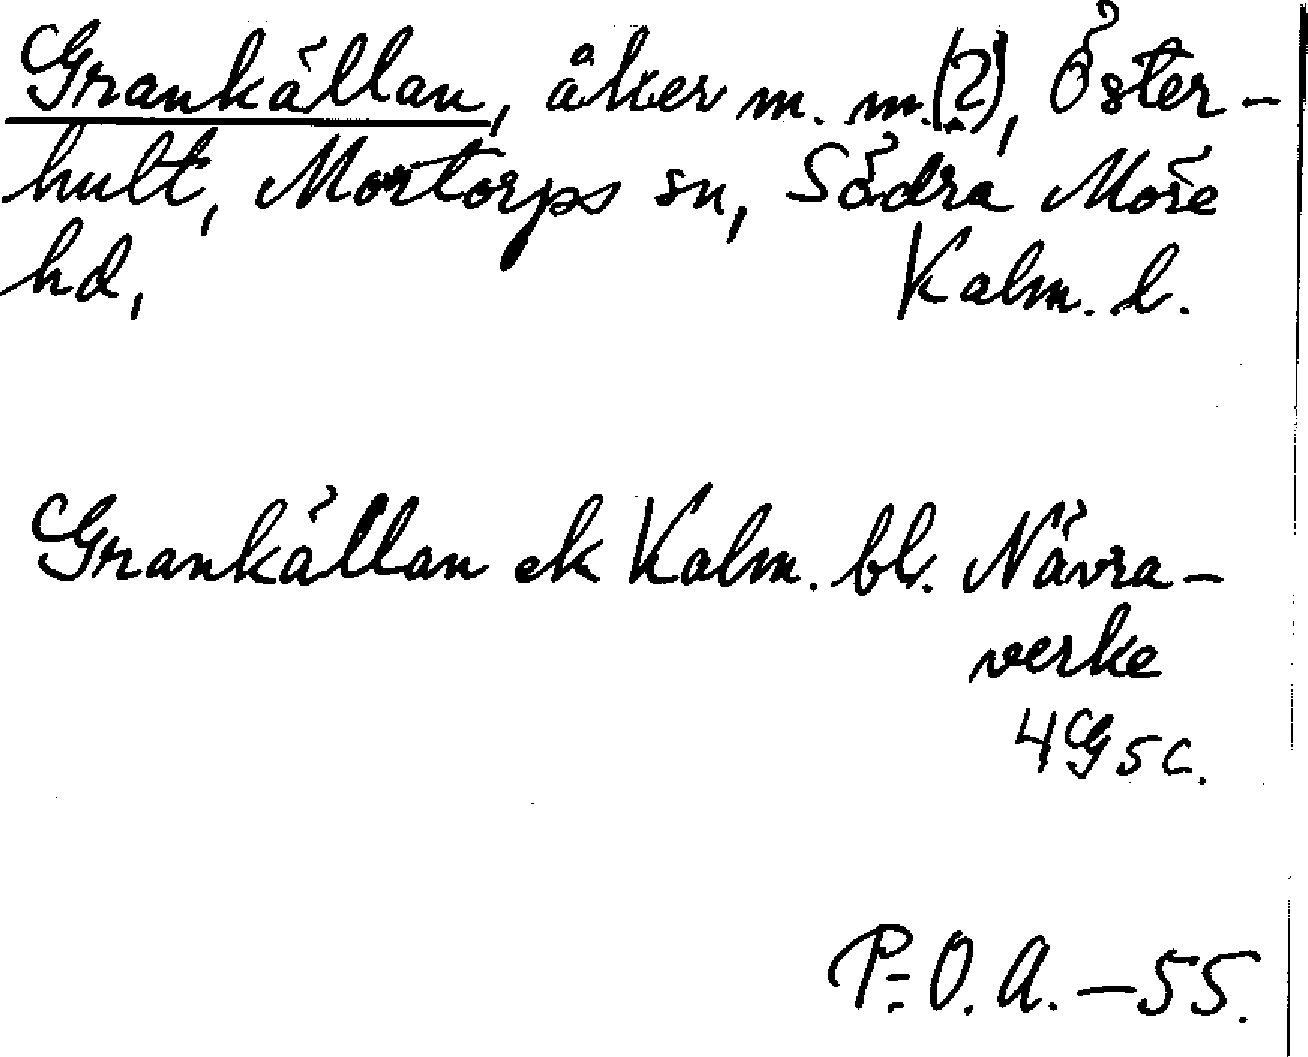 Grankällan, åker m. m.(2), Öster-
hult, Mortorps sn, Södra Möre
hd, Kalm. l.
Grankällan ek Kalm. bl. Nävra-
verke
4G5c.
P.-O. A. – 55.